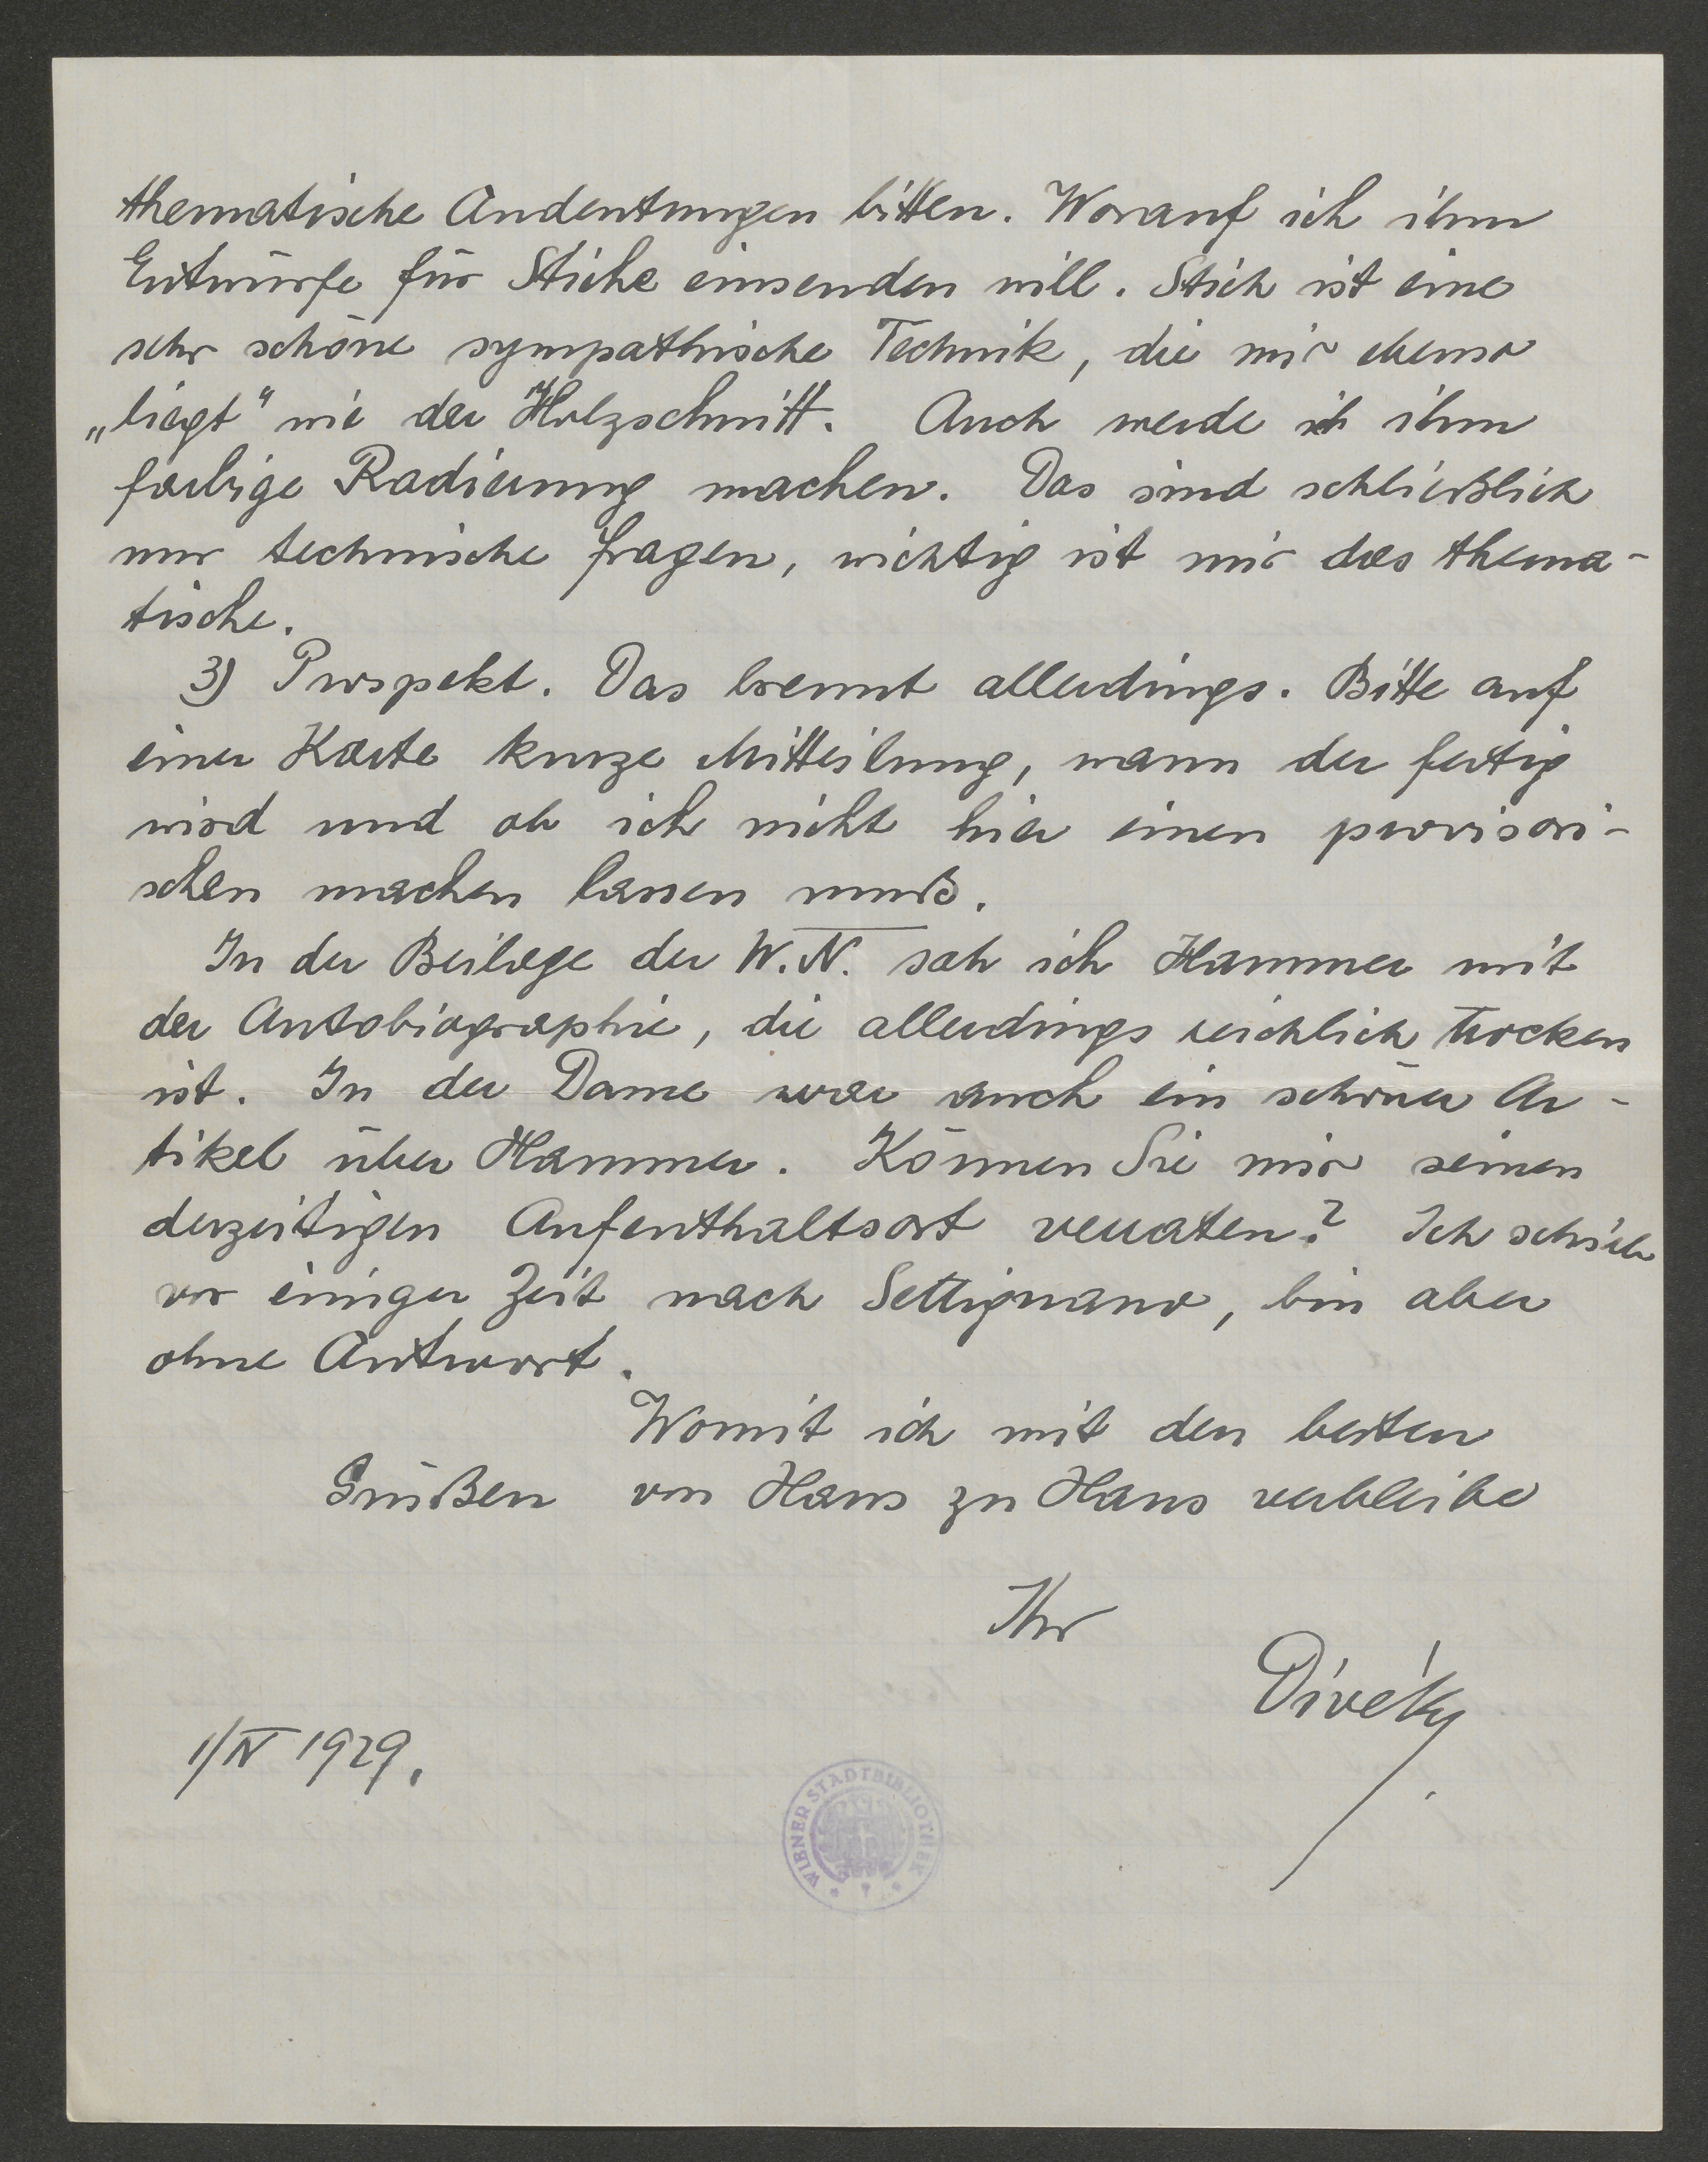 thematische Andeutungen bitten. Worauf ich ihm
Entwürfe für Stiche einsenden will. Stich ist eine
sehr schöne sympathische Technik, die mir ebenso
„liegt" wie der Holzschnitt. Auch werde ich ihm
farbige Radierung machen. Das sind schließlich
nur technische fragen, wichtig ist mir das thema-
tische.
3) Prospekt. Das brennt allerdings. Bitte auf
einer Karte kurze Mitteilung, wann der fertig
wird und ob ich nicht hier einen provisori-
schen machen lassen muß.
In der Beilage der W.N. sah ich Hammer mit
der Autobiographie, die allerdings reichlich trocken
ist. In der Dame war auch ein schöner Ar-
tikel über Hammer. Können Sie mir seinen
derzeitigen Aufenthaltsort verraten? Ich schrieb
vor einiger Zeit nach Settignano, bin aber
ohne Antwort.
Womit ich mit den besten
Grüßen von Haus zu Haus verbleibe
Ihr
Divéky
1/IV 1929.
WIENER STADTBIBLIOTHEK